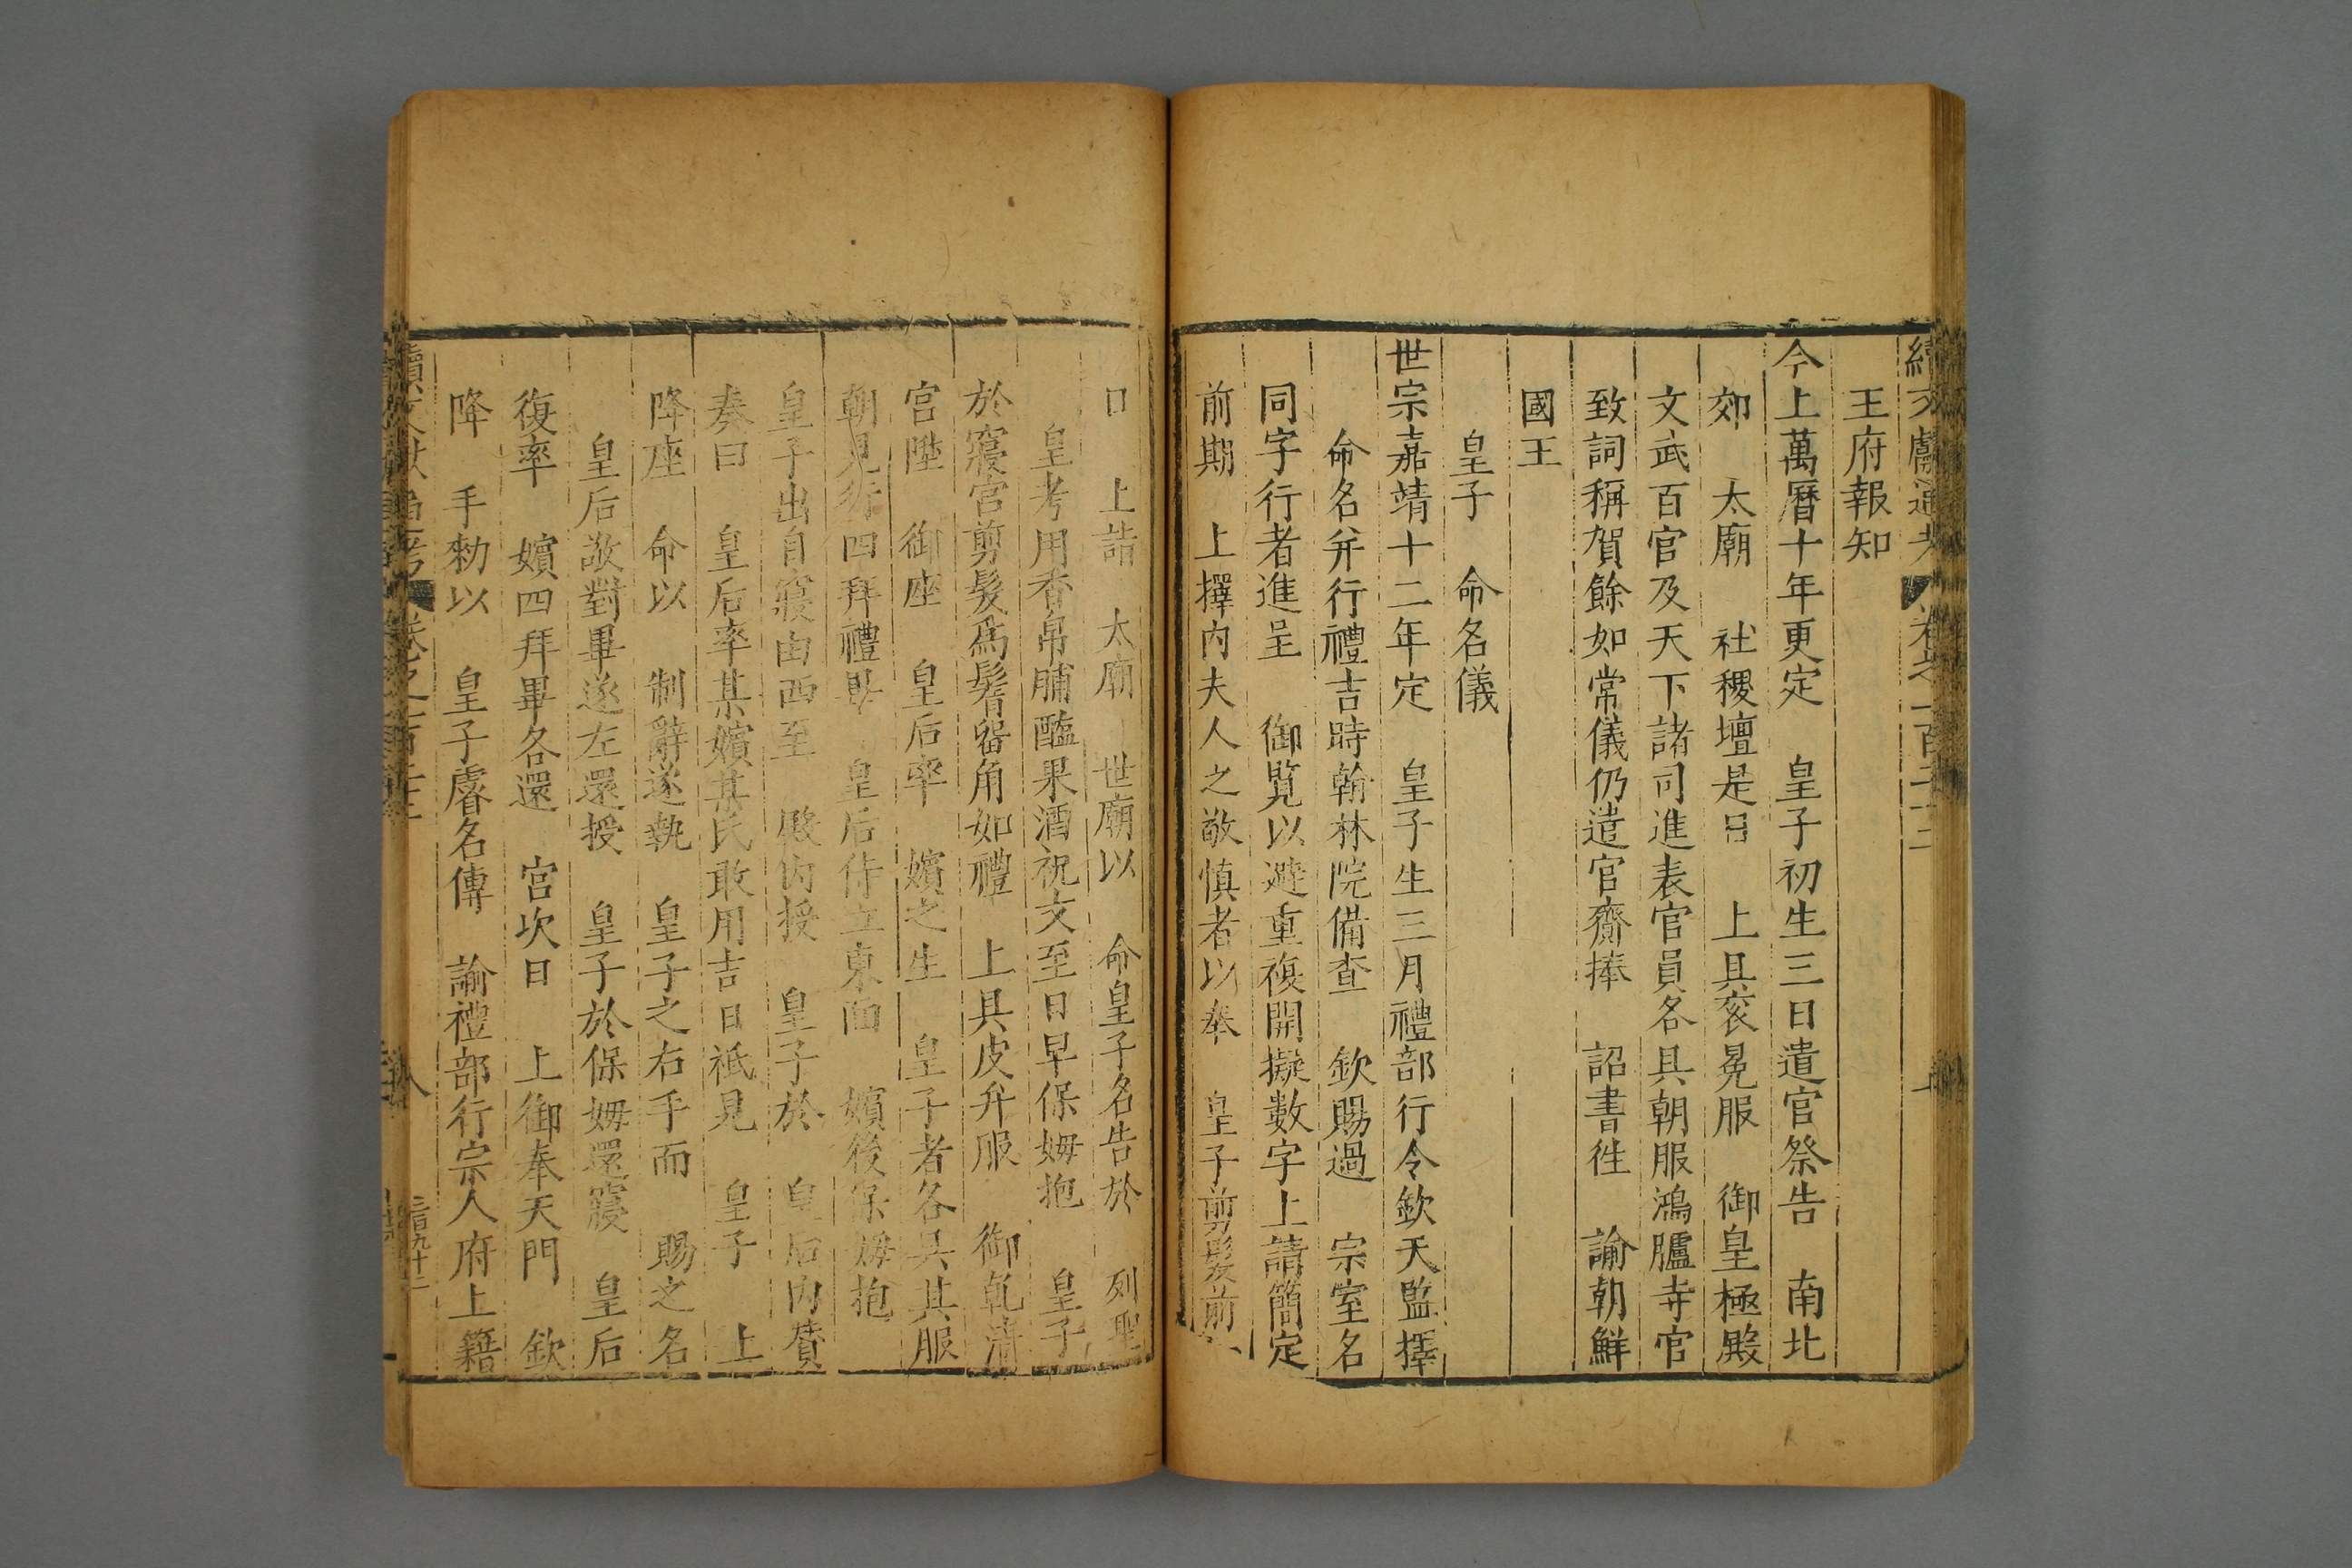 王府報知
今上萬曆十年更定　皇子初生三日遣官祭告　南北
郊　太廟　社稷壇是日　上具袞冕服　御皇極殿
文武百官及天下諸司進表官員各具朝服鴻臚寺官
致詞稱賀餘如常儀仍遣官齎捧　詔書徃　諭朝鮮
國王
皇子　命名儀
世宗嘉靖十二年定　皇子生三月禮部行令欽天監擇
命名并行禮吉時翰林院備查　欽賜過　宗室名
同字行者進呈　御覧以避重複開擬數字上請簡定
前期　上擇内夫人之敬慎者以奉　皇子剪髮前
上詣　太廟　世廟以　命皇子名告於　列聖
皇考用香帛脯醢果酒祝文至日早保姆抱　皇子
於寢宮剪髮為鬌留角如禮　上具皮弁服　御乾清
宮陞　御座　皇后率　嬪之生　皇子者各具其服
朝見行四拜禮畢　皇后侍立東面　嬪後保姆抱
皇子出自寢由西至　殿内授　皇子於　皇后内贊
奏曰　皇后率某嬪某氏敢用吉日祗見　皇子　上
降座　命以　制辭遂執　皇子之右手而　賜之名
皇后敬對畢遂左還授　皇子於保姆還寢　皇后
復率　嬪四拜畢各還　宮次日　上御奉天門　欽
降　手勑以　皇子睿名傳　諭禮部行宗人府上籍
八